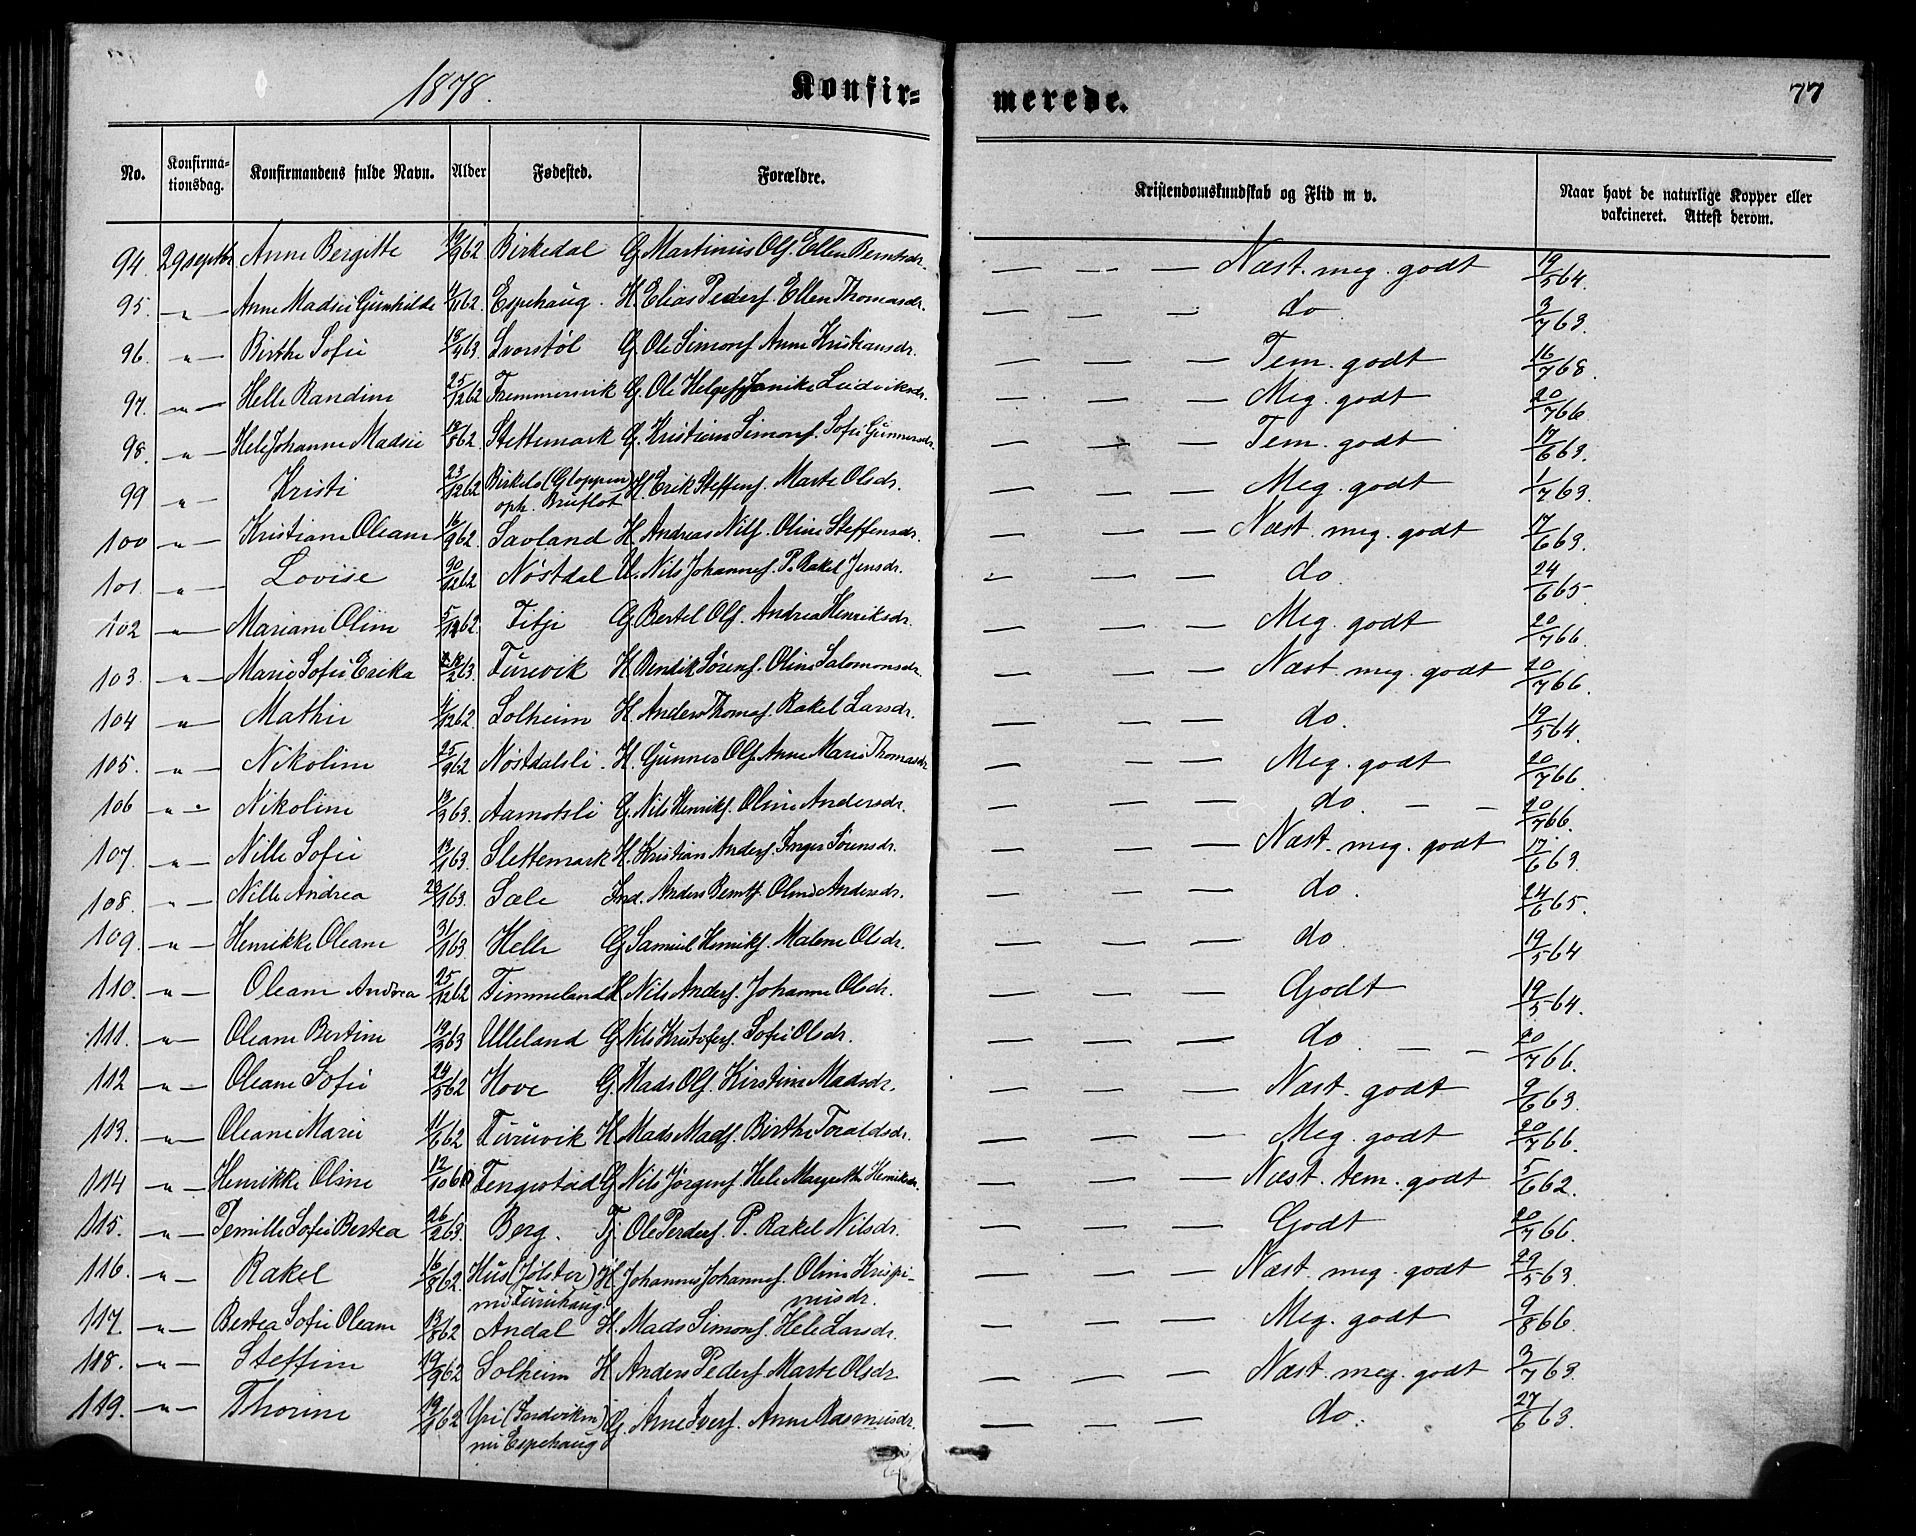 1878. Konfir= merede. 77
No. Konfirma-tionsdag. Konfirmandens fulde Navn. Alder Fødested. Forældre. Kristendomskundskab og Flid m v. Naar havt de naturlige Kopper eller vakcineret. Attest derom.
94. 29 septbr Anne Bergitte 962 Birkedal G. Martinius Ols. Ellen Berntsdr. — — — Næst. meg. godt 19/5 64.
95. „ — Anne Madsii Gunhilde 62 Espehaug. H. Elias Peders. Ellen Thomasdr. — — - do 3/7 63.
96. „ — Birthe Sofii 18/4 63. Svorstøl G. Ole Simons. Anne Kristiansdr. — — — Tem. godt 16/7 68.
97. „ — Helle Randine 25/12 62 Fremmersvik G. Ole Helges. Janike Ludviksdr. — — — Meg. godt 20/7 66
98. „ — Hele Johanne Madsii /8 62. Slettemark G. Kristian Simons. Sofii Gunnersdr. — — — Tem. godt 17/6 63.
99 „ — Kristi 23/12 62 Birkelo (Gloppen) H. Erik Steffens. Marte Olsdr. — — — Meg. godt 1/7 63.
oph. Bruflot
100 „ — Kristiane Oleane 16/9 62. Savland H. Andreas Nils. Oline Steffensdr. — — — Næst. meg. godt 17/6 63.
101. „ — Lovise 30/12 62 Nøstdal U. Nils Johannes. P. Rakel Jensdr. - — — do. 24/6 65.
102 „ — Mariane Oline 5/12 62. Fitje G. Bertel Ols. Andrea Henriksdr. — — — Meg. godt 20/7 66.
103. „ — Marie Sofii Erika /2 63. Furevik H. Bendik Sørens. Oline Salomonsdr. — — — Næst. meg. godt 20/7 66.
104 „ — Mathie /12 62 Solheim H. Anders Thomas. Rakel Larsdr. — — — do. 19/5 64.
105. „ — Nikoline 25/9 62 Nøstdalsli. H. Gunner Ols. Anne Marie Thomasdr. — — — Meg. godt 20/7 66.
106 „ - Nikoline 13/3 63. Aamotsli G. Nils Henriks. Oline Andersdr. — — — do. — — 20/7 66.
107. „ — Nille Sofii /1 63. Slettemark H. Kristian Anders. Inger Sørensdr. — — — Næst. meg. godt 17/6 63
108. „ — Nille Andrea 23/1 63. Sæle Ind. Anders Bernts. Oline Andersdr. — — — do. 24/6 65.
109. „ — Henrikke Oleane 31/1 63 Helle G. Samuel Henriks. Malene Olsdr. — — — do 19/5 64
110. — „ — Oleane Andrea 25/12 62 Timmeland H. Nils Anders. Johanne Olsdr. — — — Godt 19/5 64.
111. — „ — Oleane Bertine 19/3 63 Ulleland G. Nils Kristofers. Sofii Olsdr. — — — do. — — 20/7 66.
112 — „ — Oleane Sofii 29/5 62 Hove G. Mads Ols. Kirstine Madsdr. — — — Næst. godt 9/6 63.
113. — „ — Oleane Marii 11/6 62 Furuvik H. Mads Mads. Birthe Toraldsdr. — — — Meg. godt 20/7 66.
114 — „ — Henrikke Oline 12/10 60 Fengestad G. Nils Jørgens. Hele Margrethe Henriksdr. — — — Næst. tem. godt 5/6 62.
115. — „ — Pernille Sofii Bertea 26/2 63. Berg. Tj Ole Peders. P. Rakel Nilsdr. — — — Godt 20/7 66.
116. — „ — Rakel 16/8 62. Hus (Jølster) H. Johannes Johannes. Oline Krispi- — — — Næst. meg. godt 29/5 63.
nu Furuhaug. nusdr.
117. — „ — Bertea Sofii Oleane 13/8 62 Andal H. Mads Simons. Hele Larsdr. — — — Meg. godt 9/8 66.
118. — „ — Steffine 19/9 62 Solheim H. Anders Peders. Marte Olsdr — — — Næst. meg. godt 3/7 63.
119. — „ — Thorine 19/1 62 Yri (Indviken) G. Arne Ivers. Anne Rasmusdr. — — — do. 27/6 63.
nu Espehaug